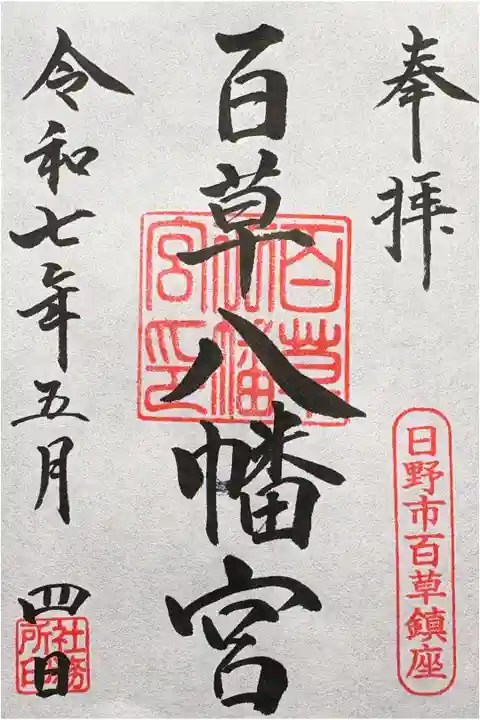 奉拝
日野市百草鎮座
百草八幡宮
百草八幡宮印
令和七年五月四日
社務所印